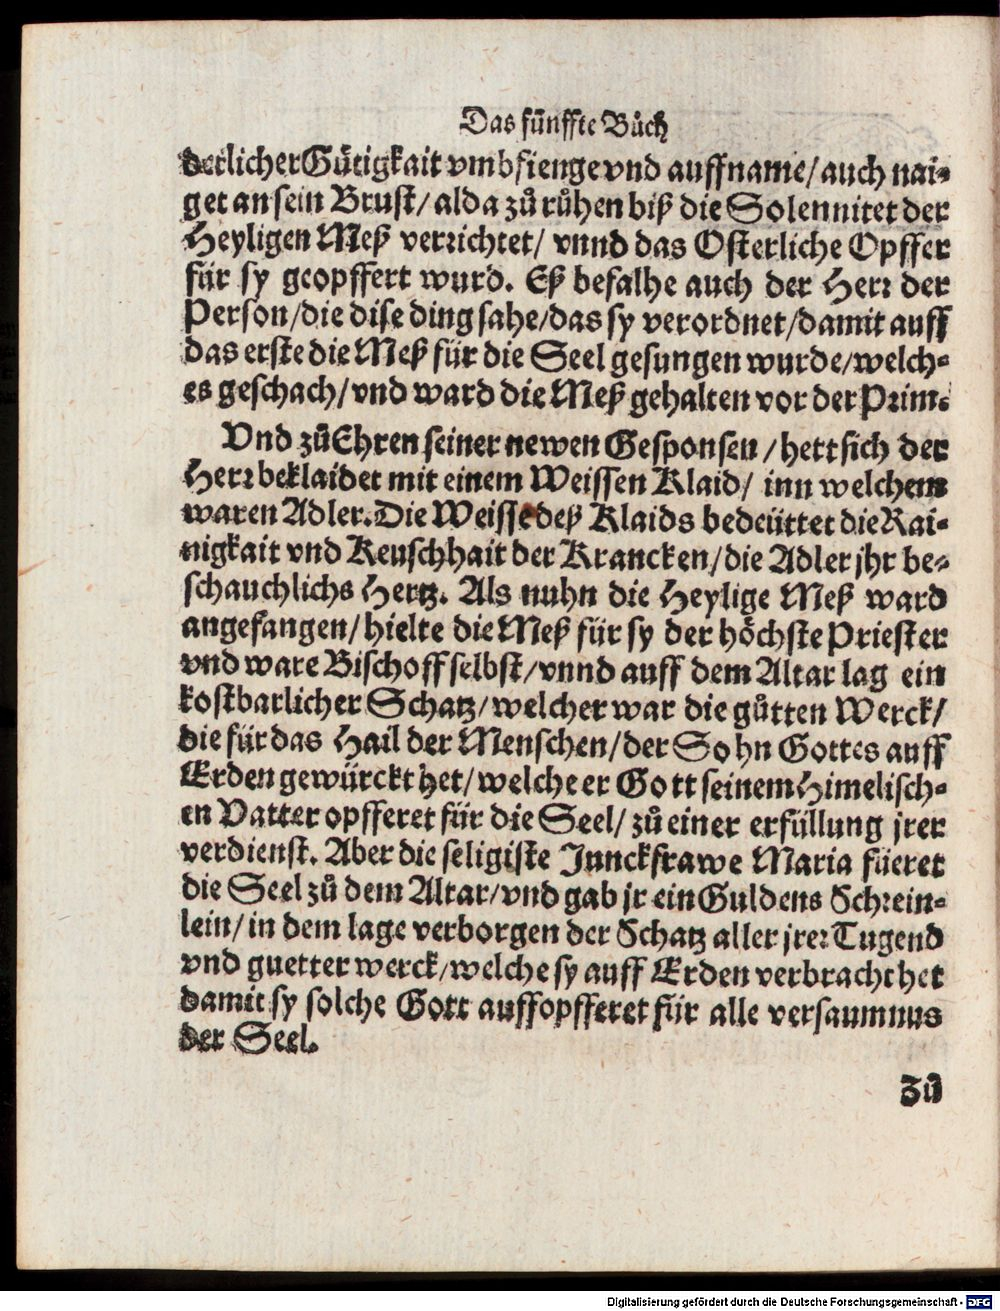 Das fünffte Bůch
derlicher Gütigkait vmbfienge vnd auffname/ auch nai-
get an sein Brust/ alda zů růhen biß die Solennitet der
Heyligen Meß verrichtet/ vnnd das Osterliche Opffer
für sy geopffert wurd. Eß befalhe auch der Herr der
Person/die dise ding sahe/das sy verordnet/damit auff
das erste die Meß für die Seel gesungen wurde/welch-
es geschach/vnd ward die Meß gehalten vor der Prim.
Vnd zů Ehren seiner newen Gesponsen/hett sich der
Herr beklaidet mit einem Weissen Klaid/ inn welchem
waren Adler. Die Weisse deß Klaids bedeüttet die Rai-
nigkait vnd Keuschhait der Krancken/die Adler jhr be-
schauchlichs Hertz. Als nuhn die Heylige Meß ward
angefangen/hielte die Meß für sy der höchste Priester
vnd ware Bischoff selbst/vnnd auff dem Altar lag ein
kostbarlicher Schatz/welcher war die gůtten Werck/
die für das Hail der Menschen/der Sohn Gottes auff
Erden gewürckt het/welche er Gott seinem Himelisch-
en Vatter opfferet für die Seel/ zů einer erfüllung jrer
verdienst. Aber die seligiste Junckfrawe Maria füeret
die Seel zů dem Altar/vnd gab jr ein Guldens Schrein-
lein/in dem lage verborgen der Schatz aller jrer Tugend
vnd guetter werck/welche sy auff Erden verbracht het
damit sy solche Gott auffopfferet für alle versaumnus
der Seel.
Zů
Digitalisierung gefördert durch die Deutsche Forschungsgemeinschaft - DFG